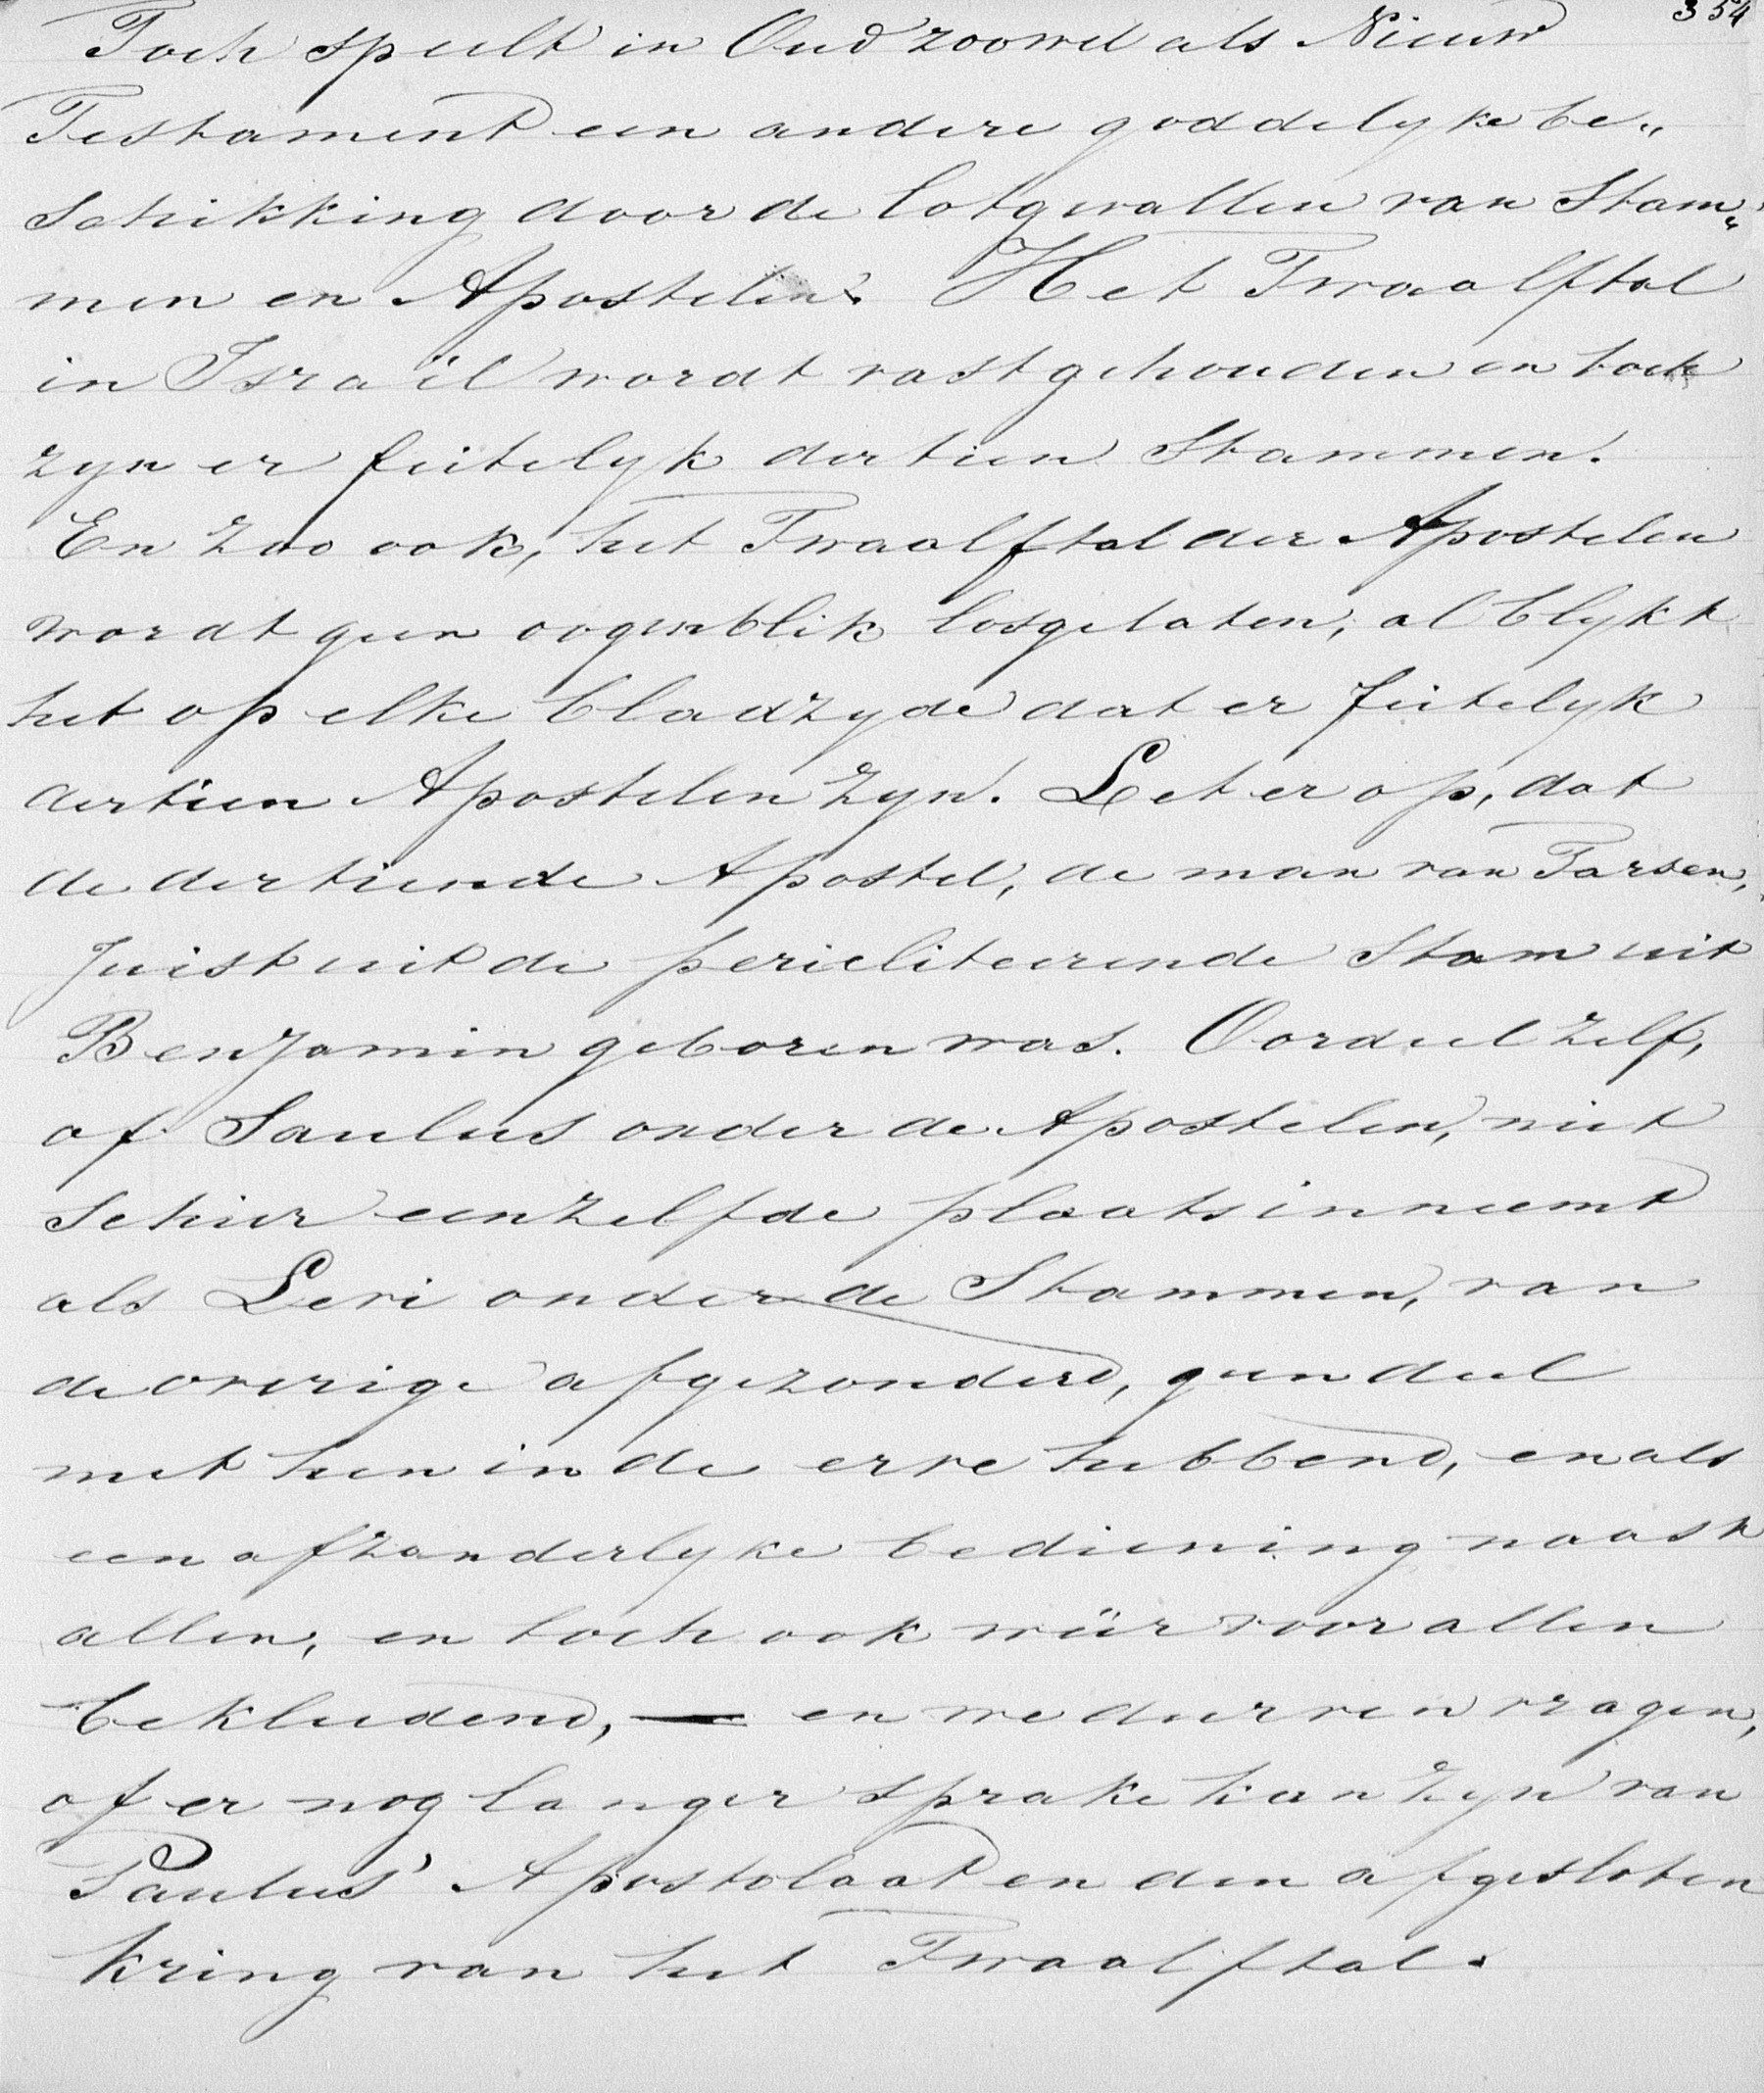 354
Toch speelt in Oud zoowel als Nieuw
Testament een andere goddelyke be„
schikking door de lotgevallen van Stam„
men en Apostelen. Het Twaalftal
in Israël wordt vastgehouden en toch
zyn er feitelyk dertien Stammen.
En zoo ook, het Twaalftal der Apostelen
wordt geen oogenblik losgelaten, al blykt
het op elke bladzyde dat er feitelyk
dertien Apostelen zyn. Let er op, dat
de dertiende Apostel, de man van Tarsen,
juist uit de perieliteerende Stam uit
Benjamin geboren was. Oordeel zelf,
of Saulus onder de Apostelen, niet
schier eenzelfde plaats inneemt
als Levi onder de Stammen, van
de overige afgezonderd, geen deel
met hen in de erve hebbend, en als
een afzonderlyke bediening naast
allen, en toch ook wéér voor allen
bekleedend, — en we durven vragen,
of er nog langer sprake kan zyn van
Paulus' Apostolaat en den afgesloten
kring van het Twaalftal.